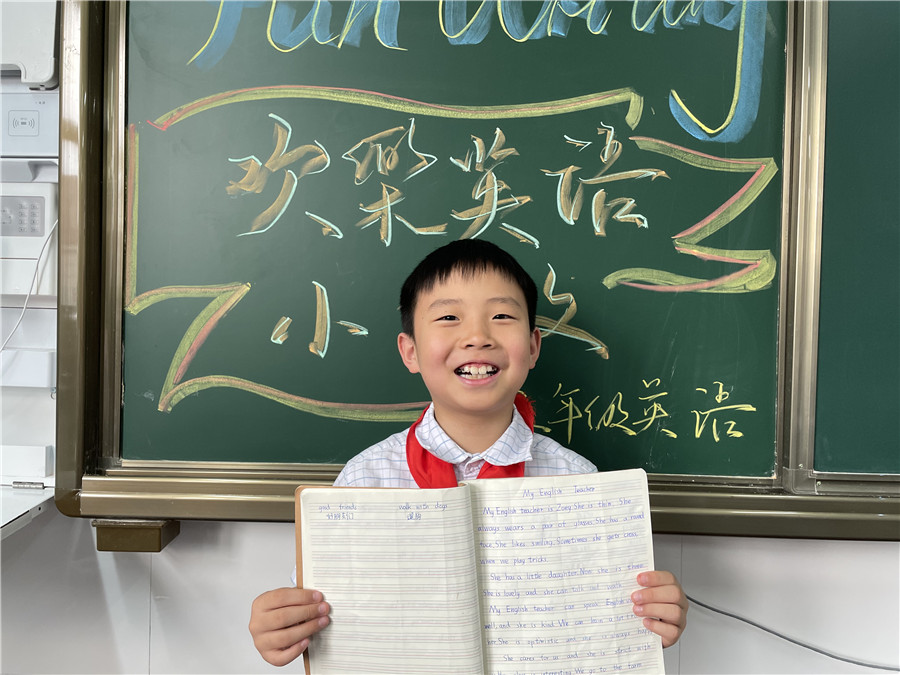 欢樂英语
小 文
年级英语
good friends walk with dogs
My English teacher
My English teacher is Zoey. She is thin. She
always wears a pair of glasses. She has a round
face. She likes smiling. Sometimes she gets cross
when we play tricks.
She has a little daughter. Now she is three.
She is lovely and she can talk and walk.
My English teacher can speak English
well, and she is kind. We can learn a lot
her. She is optimistic and she is always happy.
She cares for us and she is strict with
is interesting. We go to the farm